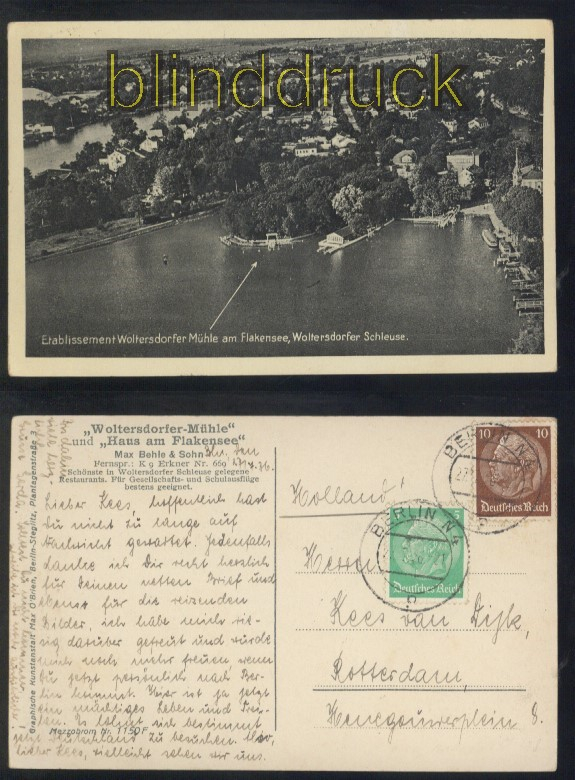 blinddruck
Etablissement Woltersdorfer Mühle am Flakensee, Woltersdorfer Schleuse.
„Woltersdorfer-Mühle“
und „Haus am Flakensee“
Max Behle & Sohn
Fernspr.: K 9 Erkner Nr. 669
Schönste in Woltersdorfer Schleuse gelegene
Restaurants. Für Gesellschafts- und Schulausflüge
bestens geeignet.
Lieber Kees, hoffentlich hast
du nicht zu lange auf
Nachricht gewartet. Jedenfalls
danke ich Dir recht herzlich
für Deinen netten Brief und
ebenso für die reizenden
Bilder, ich habe mich rie-
sig darüber gefreut und würde
mich noch mehr freuen, wenn
du jetzt persönlich nach Ber-
lin kommst. Hier ist ja jetzt
ein mächtiges Leben und Trei-
ben. Es lohnt sich bestimmt
jetzt Deutschland zu besuchen. Also,
lieber Kees, vielleicht sehen wir uns.
Mezzobrom Nr. 1150F
Graphische Kunstanstalt Max O'Brien, Berlin-Steglitz, Plantagenstraße 3
BERLIN N4
10 10
Deutsches Reich
BERLIN N4
5
Deutsches Reich
Holland!
Herrn
Kees van Dijk,
Rotterdam,
Henegouwerplein 8.